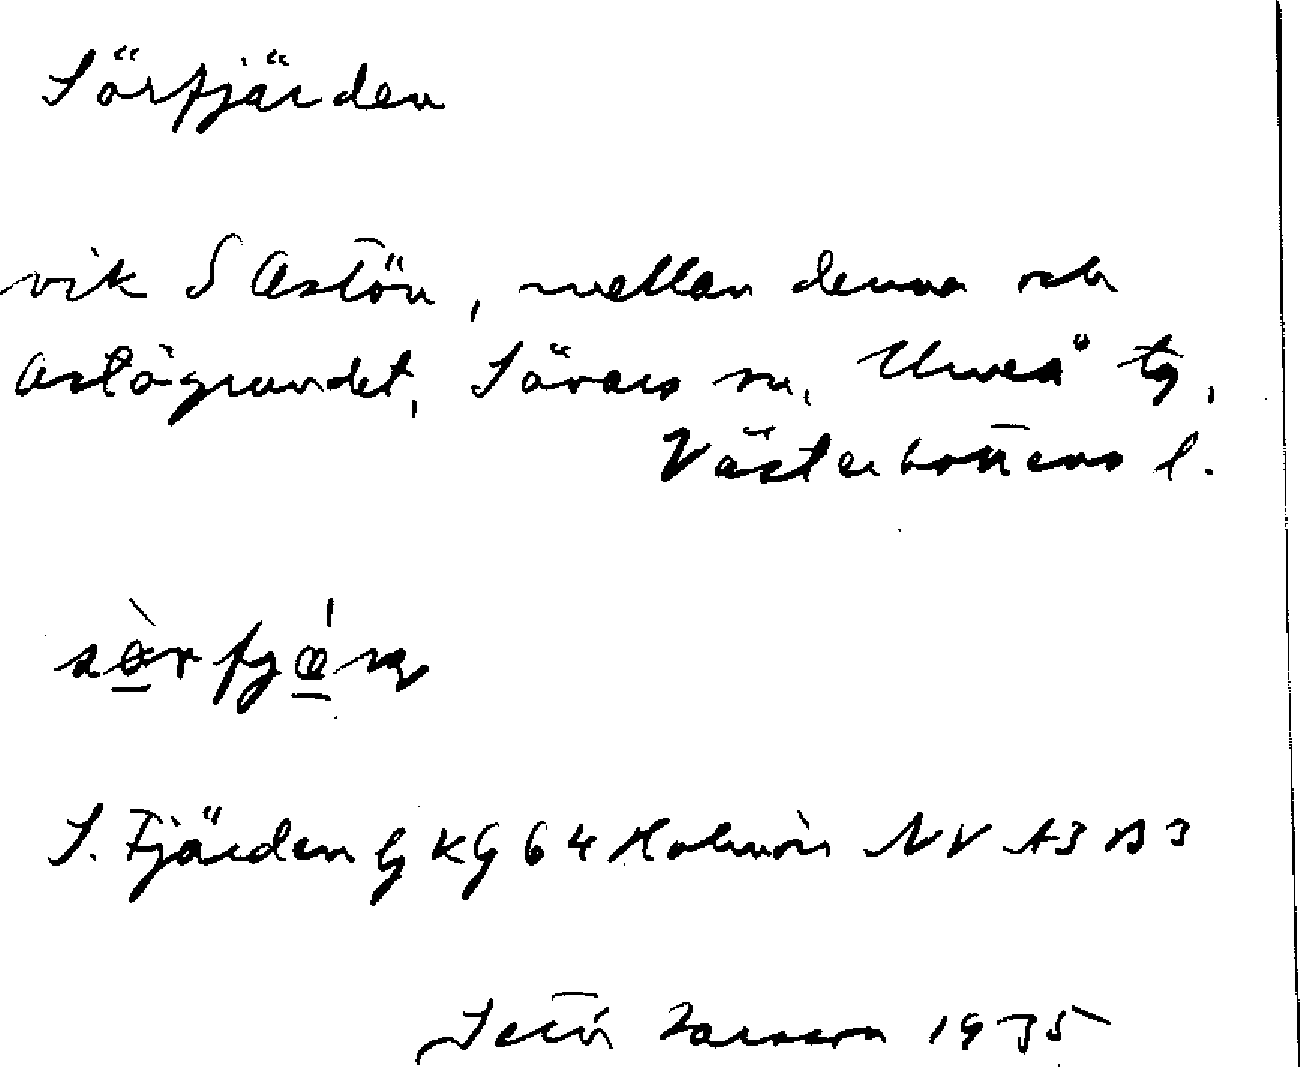 Sörfjärden
vik S Astön, mellan denna och
Astögrundet, Sävars sn, Umeå tg,
Västerbottens l.
S. Fjärden GKG 64 Holmön NV A3 B3
Larsson 1935